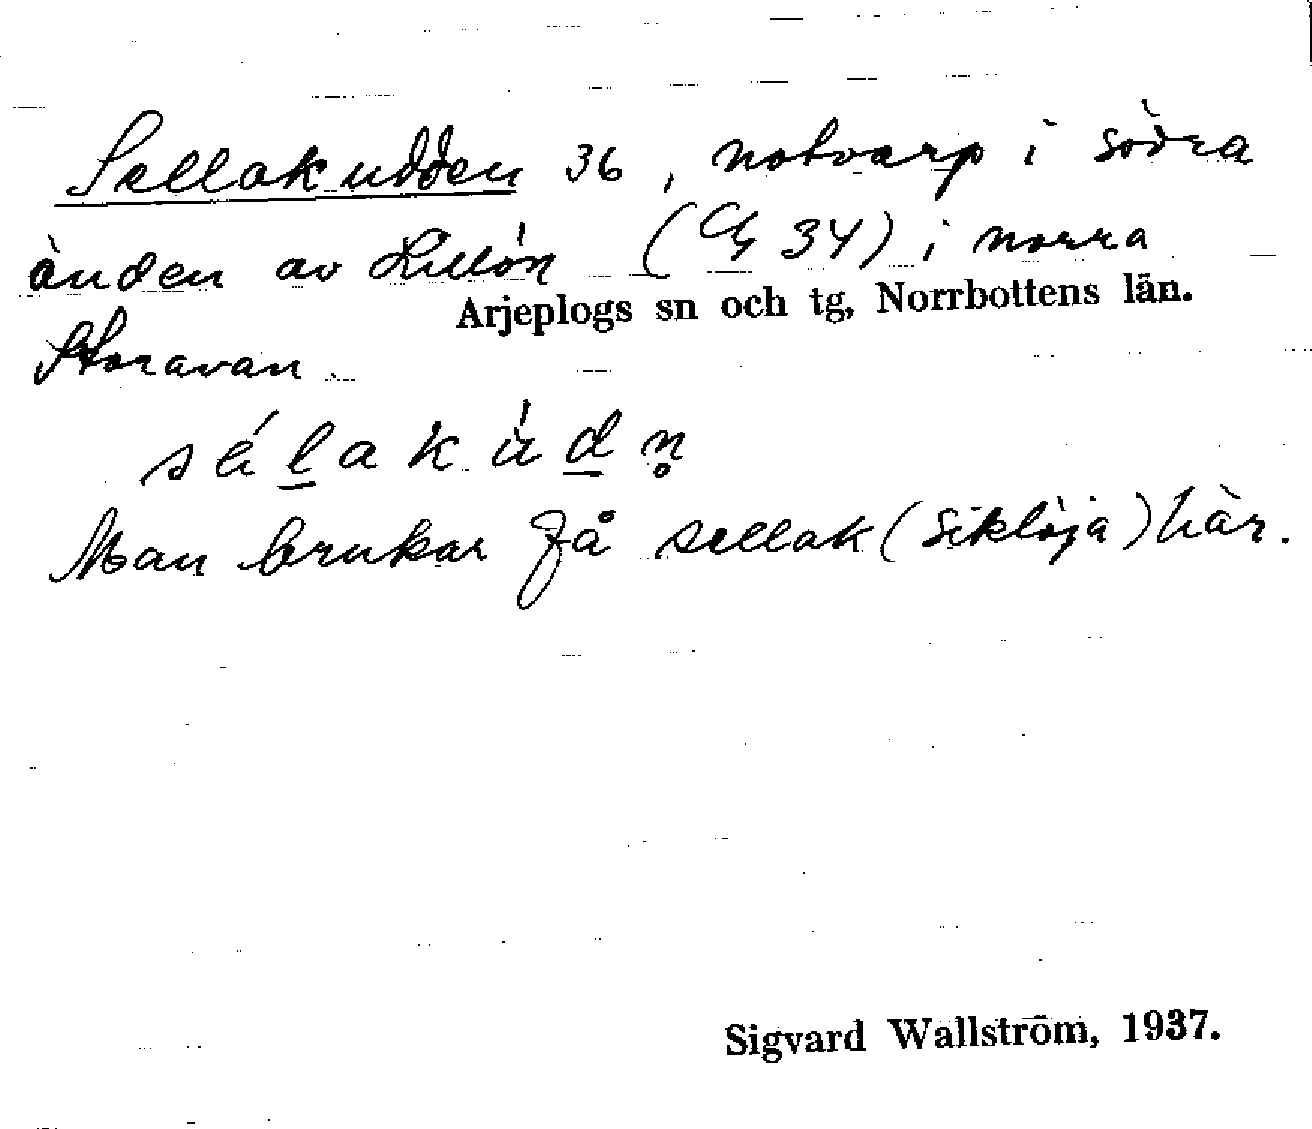 Sellakudden 36, notvarp i södra
änden av Lillön (Cf 34) i norra
Arjeplogs sn och tg, Norrbottens län.
Storavan
sélakùdn̥
Man brukar få sellak (siklöja) här.
Sigvard Wallström, 1937.